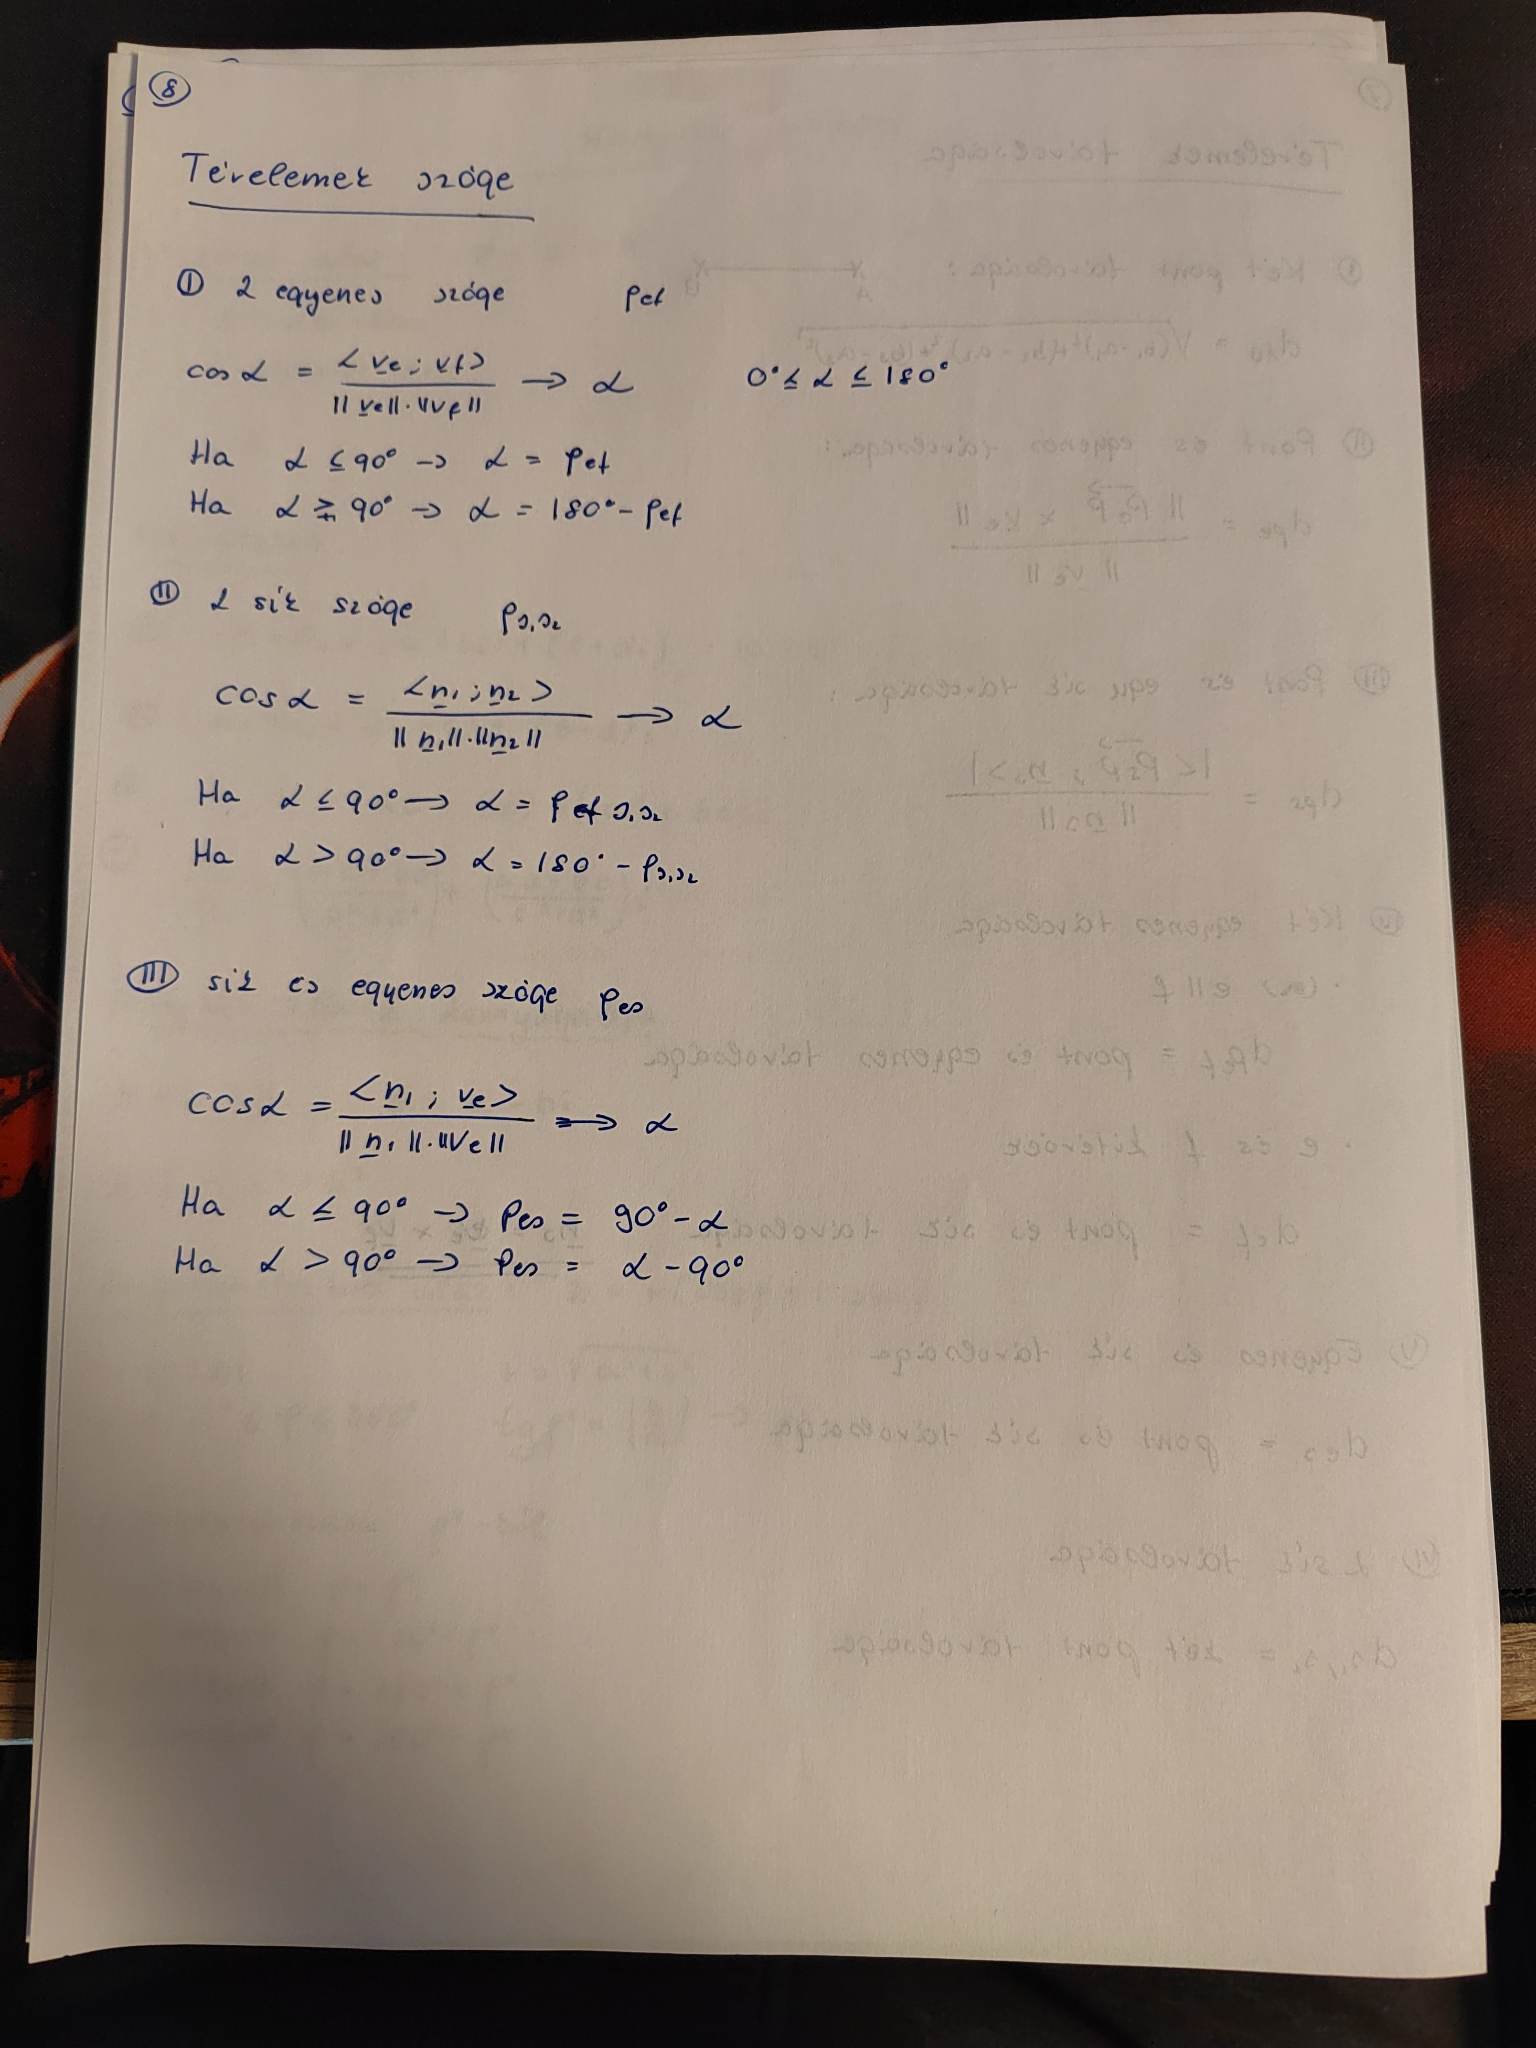 8
Térelemek szöge
I 2 egyenes szöge φef
cos α = <ve ; vf> / ||ve|| · ||vf|| → α 0° ≤ α ≤ 180°
Ha α ≤ 90° → α = φef
Ha α ≥ 90° → α = 180° - φef
II 2 sík szöge φs₁s₂
cos α = <n₁ ; n₂> / ||n₁|| · ||n₂|| → α
Ha α ≤ 90° → α = φ s₁s₂
Ha α > 90° → α = 180° - φs₁s₂
III sík és egyenes szöge φes
cos α = <n₁ ; ve> / ||n₁|| · ||ve|| → α
Ha α ≤ 90° → φes = 90° - α
Ha α > 90° → φes = α - 90°